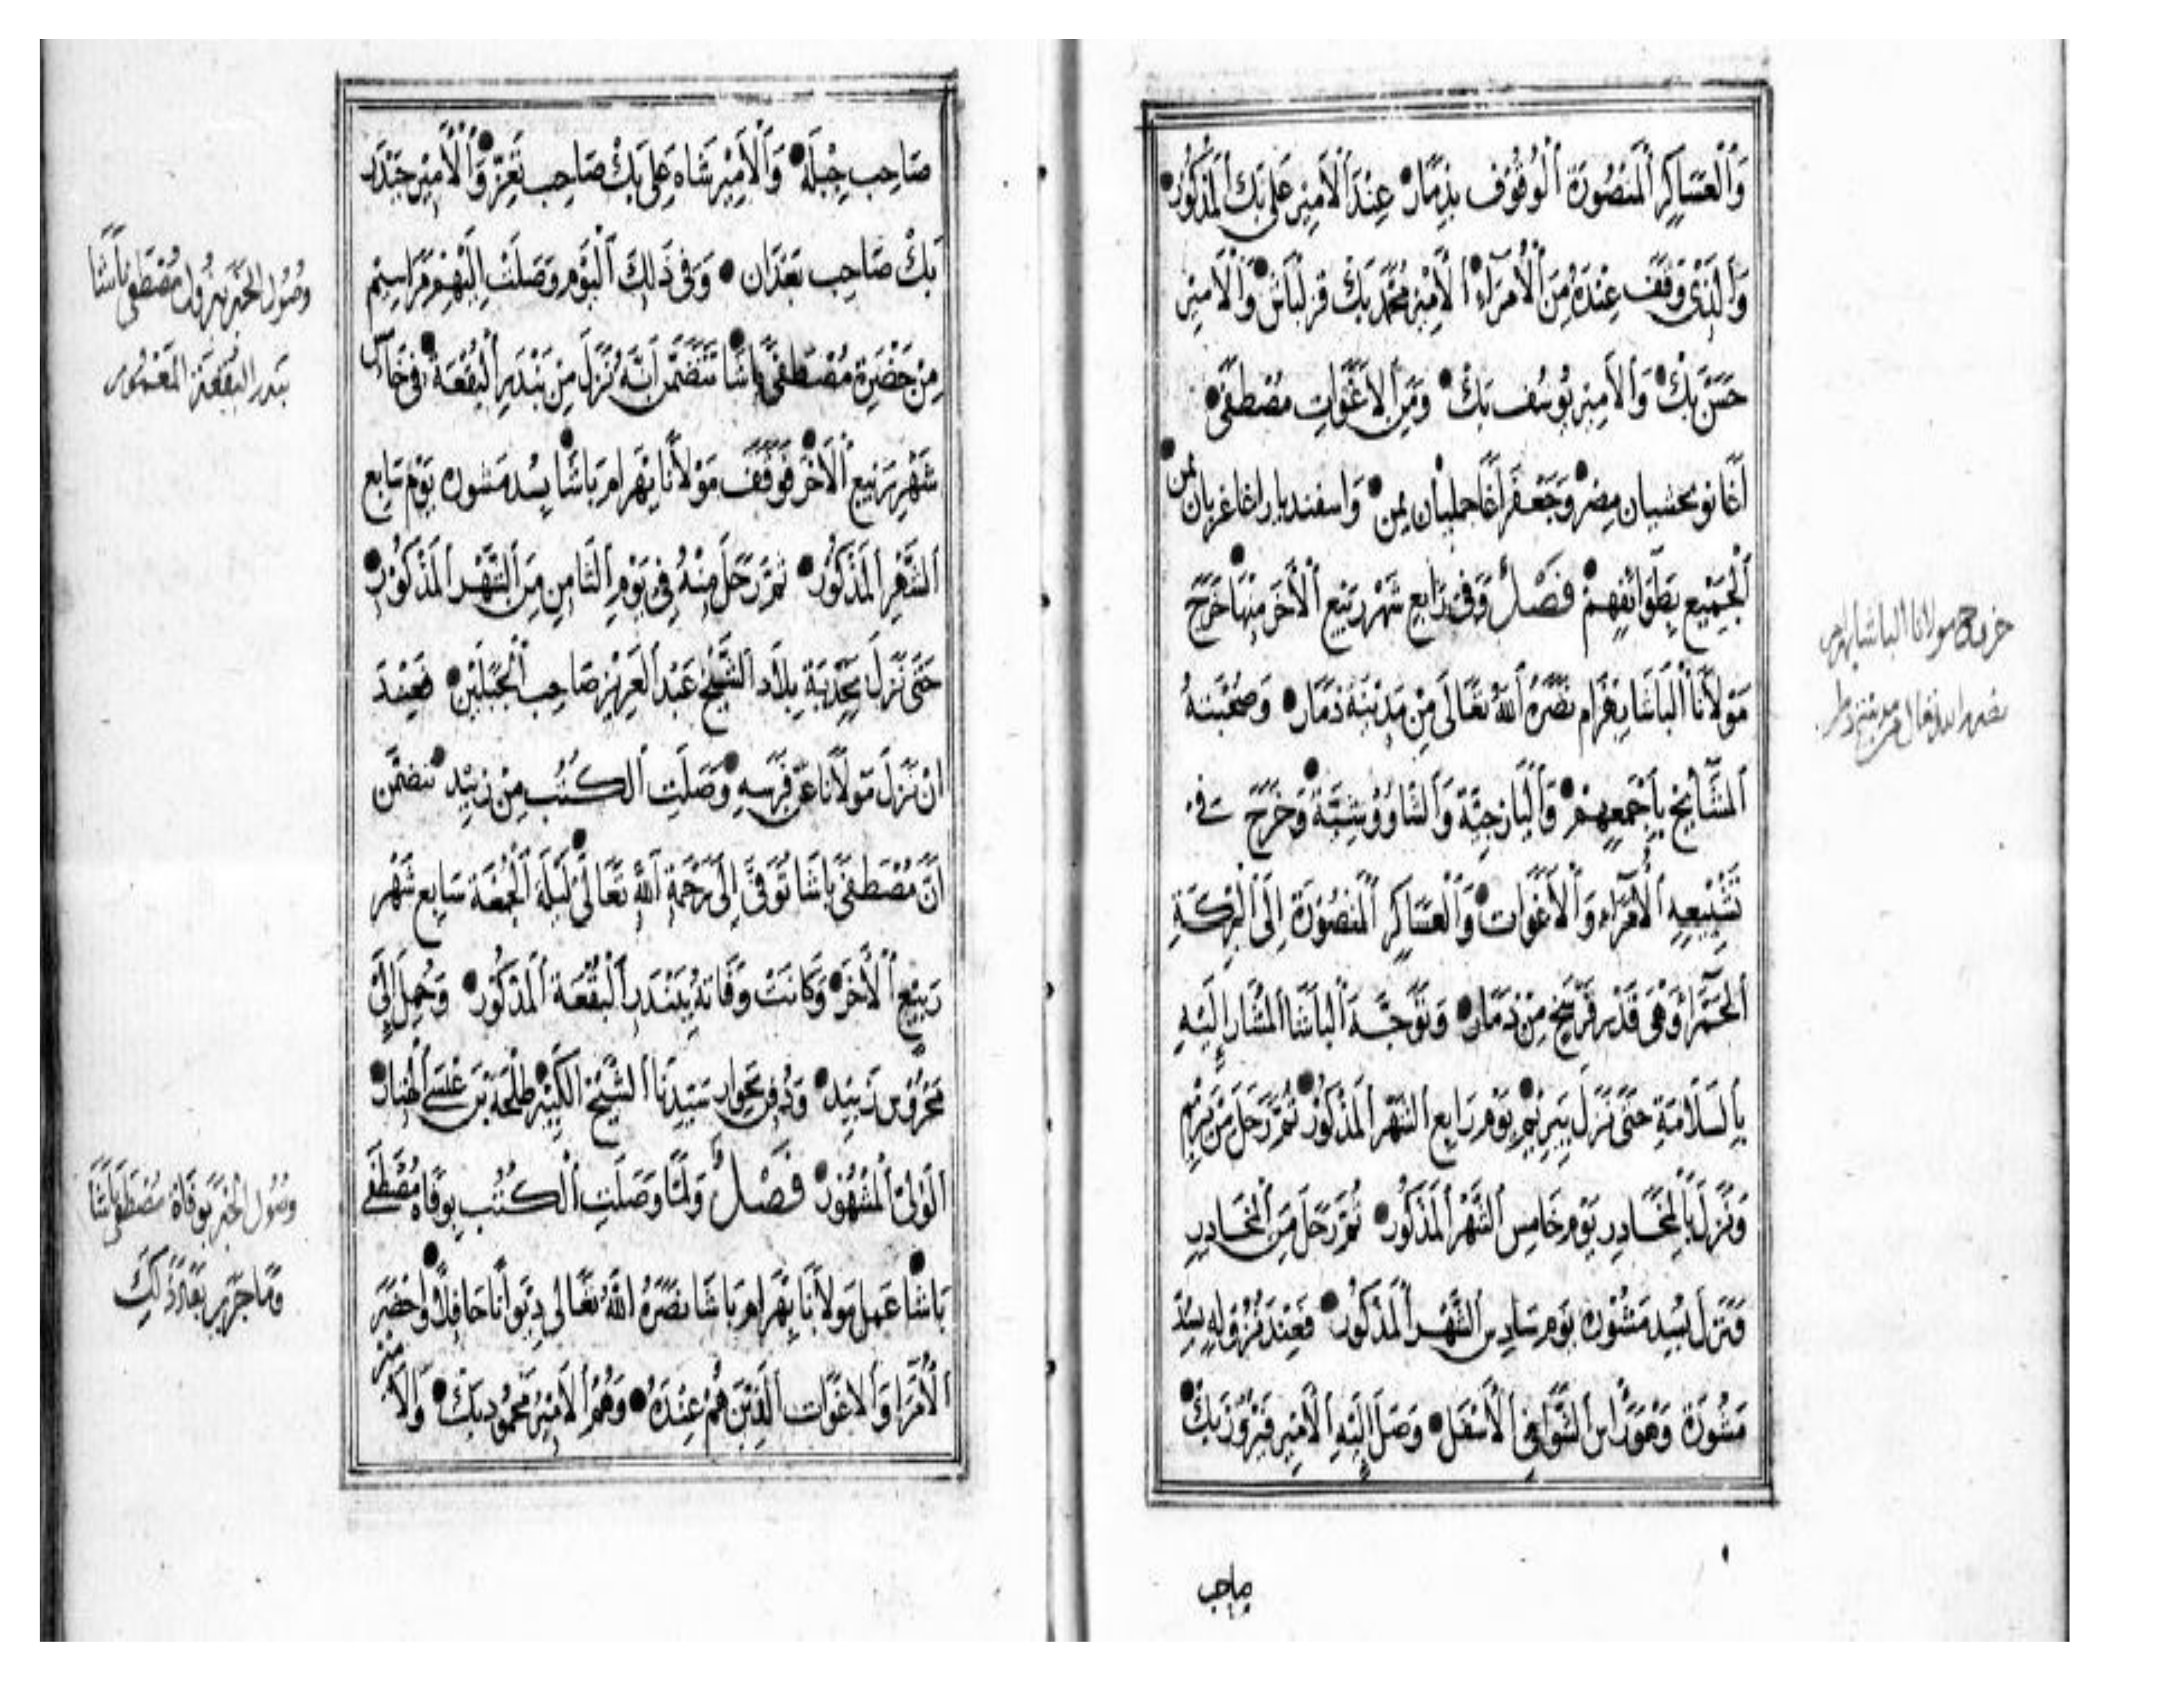 وَالْعَسَاكِرِ الْمَنْصُورَةِ الْوُقُوفِ بِذِمَارْ عِنْدَ الْأَمِيْرِ عَلِي بَكْ الْمَذْكُوْرْ
وَالَّذِيْ وَقَفَ عِنْدَهُ مِنَ الْأُمَرَآءِ الْأَمِيْرِ مُحَمَّدْ بَكْ قزلباش وَالْأَمِيْرِ
حَسَنْ بَكْ وَالْأَمِيْر يُوسُف بَكْ وَمِنَ الْأغَوَاتِ مُصْطَفَى
أَغَا نوبحشيان مِصْر وَجَعْفَر أَغَا جمليان يمن وَاسفنديار اغا غربان يمن
الْجَمِيْعِ بِطَوَائِفِهِمْ فَصْلٌ وَفِيْ رَابِع شَهْرِ رَبِيْع الْأَخَر مِنْهَا خَرَجَ
مَوْلَانَا الْبَاشَا بَهْرَام نَصَرَهُ اللهُ تَعَالَى مِنْ مَدِيْنَةِ ذَمَارْ وَصُحْبَتهُ
الْمَشَايِخْ بِأَجْمَعِهِمْ وَالْيَازجيَّة وَالشَّاوُوْشِيَّة وَخَرَجَ فِي
تَشْيِيْعِهِ الْأُمَرَاء وَالْأَغَوَات وَالْعَسَاكِرِ الْمَنْصُوْرَة إِلَى الْبِرْكَةِ
الْحَمْرَا وَهْيَ قَدْر فَرْسَخ مِنْ ذَمَارْ وَتَوَجَّهَ الْبَاشَا الْمُشَار إِلَيْهِ
بِالسَّلَامَةِ حَتَّى نَزَلَ بِيَرِيْمْ يَوْم رَابِع الشَّهْر الْمَذْكُوْرْ ثُمَّ رَحَلَ مِنْ يَرِيْمْ
وَنَزَلَ بِالْمَخَادِرِ يَوْم خَامِس الشَّهْر الْمَذْكُوْرْ ثُمَّ رَحَلَ مِنَ الْمَخَادِرِ
وَنَزَلَ بِسُدِ مَسْوَرَة يَوْم سَادِس الشَّهْر الْمَذْكُوْرْ فَعِنْدَ نُزُوْلِهِ بِسُدِّ
مَسْوَرَة وَهُوَ رَاس الشَّوَافِي الْأَسْفَل وَصَلَ إِلَيْهِ الْأَمِيْر فَيْرُوْز بَكْ
صاحب
خروج مولانا الباشا بهرام
نصره الله تعالى من مدينة ذمار
صَاحِب جِبْلَة وَالْأَمِيْر شَاه عَلِي بَكْ صَاحِب تَعِزّ وَالْأَمِيْر حَيْدَر
بَكْ صَاحِب بَعْدَان وَفِي ذَلِكَ الْيَوْمِ وَصَلَتْ إِلَيْهِمْ مَرَاسِيْم
مِنْ حَضْرَة مُصْطَفَى بَاشَا تَتَضَمَّنْ أَنَّهُ نَزَلَ مِنْ بَنْدَرِ الْبُقْعَة فِي خَامِس
شَهْرِ رَبِيْع الْأَخَر فَوَقَفَ مَوْلَانَا بَهْرَام بَاشَا بِسُد مَسْوَرَة يَوْم سَابِع
الشَّهْر الْمَذْكُوْر ثُمَّ رَحَلَ مِنْهُ فِي يَوْمِ الثَّامِن مِنَ الشَّهْر الْمَذْكُوْر
حَتَّى نَزَلَ بِحَدَبَةِ بِلَادِ الشَّيْخ عَبْد الْعَزِيْز صَاحِب الْحُبَلَيْن فَعِنْدَ
انْ نَزَلَ مَوْلَانَا عَنْ فَرَسِهِ وَصَلَتِ الْكُتُب مِنْ زَبِيْد تتَضَمَّن
انَّ مُصْطَفَى بَاشَا تُوُفِّيَ إِلَى رَحْمَةِ اللهِ تَعَالَى لَيْلَة الْجُمْعَة سَابِع شَهْر
رَبِيْع الْأَخَر وَكَانَتْ وَفَاتهُ بِبَنْدَرِ الْبُقْعَة الْمَذْكُوْر وَحُمِلَ إِلَى
مَحْرُوْس زَبِيْد وَدُفِنَ بِجِوَارِ سَيِّدِنَا الشَّيْخ الْكَبِيْر طَلْحَة بْن عِيْسَى الْهِتَار
الْوَلِيّ الْمَشْهُوْر فَصْلٌ وَلَمَّا وَصَلَتِ الْكُتُب بِوَفَاة مُصْطَفَى
بَاشَا عَمِلَ مَوْلَانَا بَهْرَام بَاشَا نَصَرَهُ اللهُ تَعَالَى دِيْوَانًا حَافِلًا وَأَحْضَرَ
الْأُمَرَا وَالْأَغَوَات الَّذِيْنَ هُمْ عِنْدَهُ وَهُمُ الْأَمِيْر مَحْمُوْد بَكْ وَالْأَمِيْر
وصُوْل الْخَبَر بِنزُول مُصْطَفَى بَاشَا
بندر البُقْعَة الْمَعْمُور
وصُول الْخَبَر بِوَفَاة مُصْطَفَى بَاشَا
وَمَا جَرَى بَعْدَ ذَلِكَ